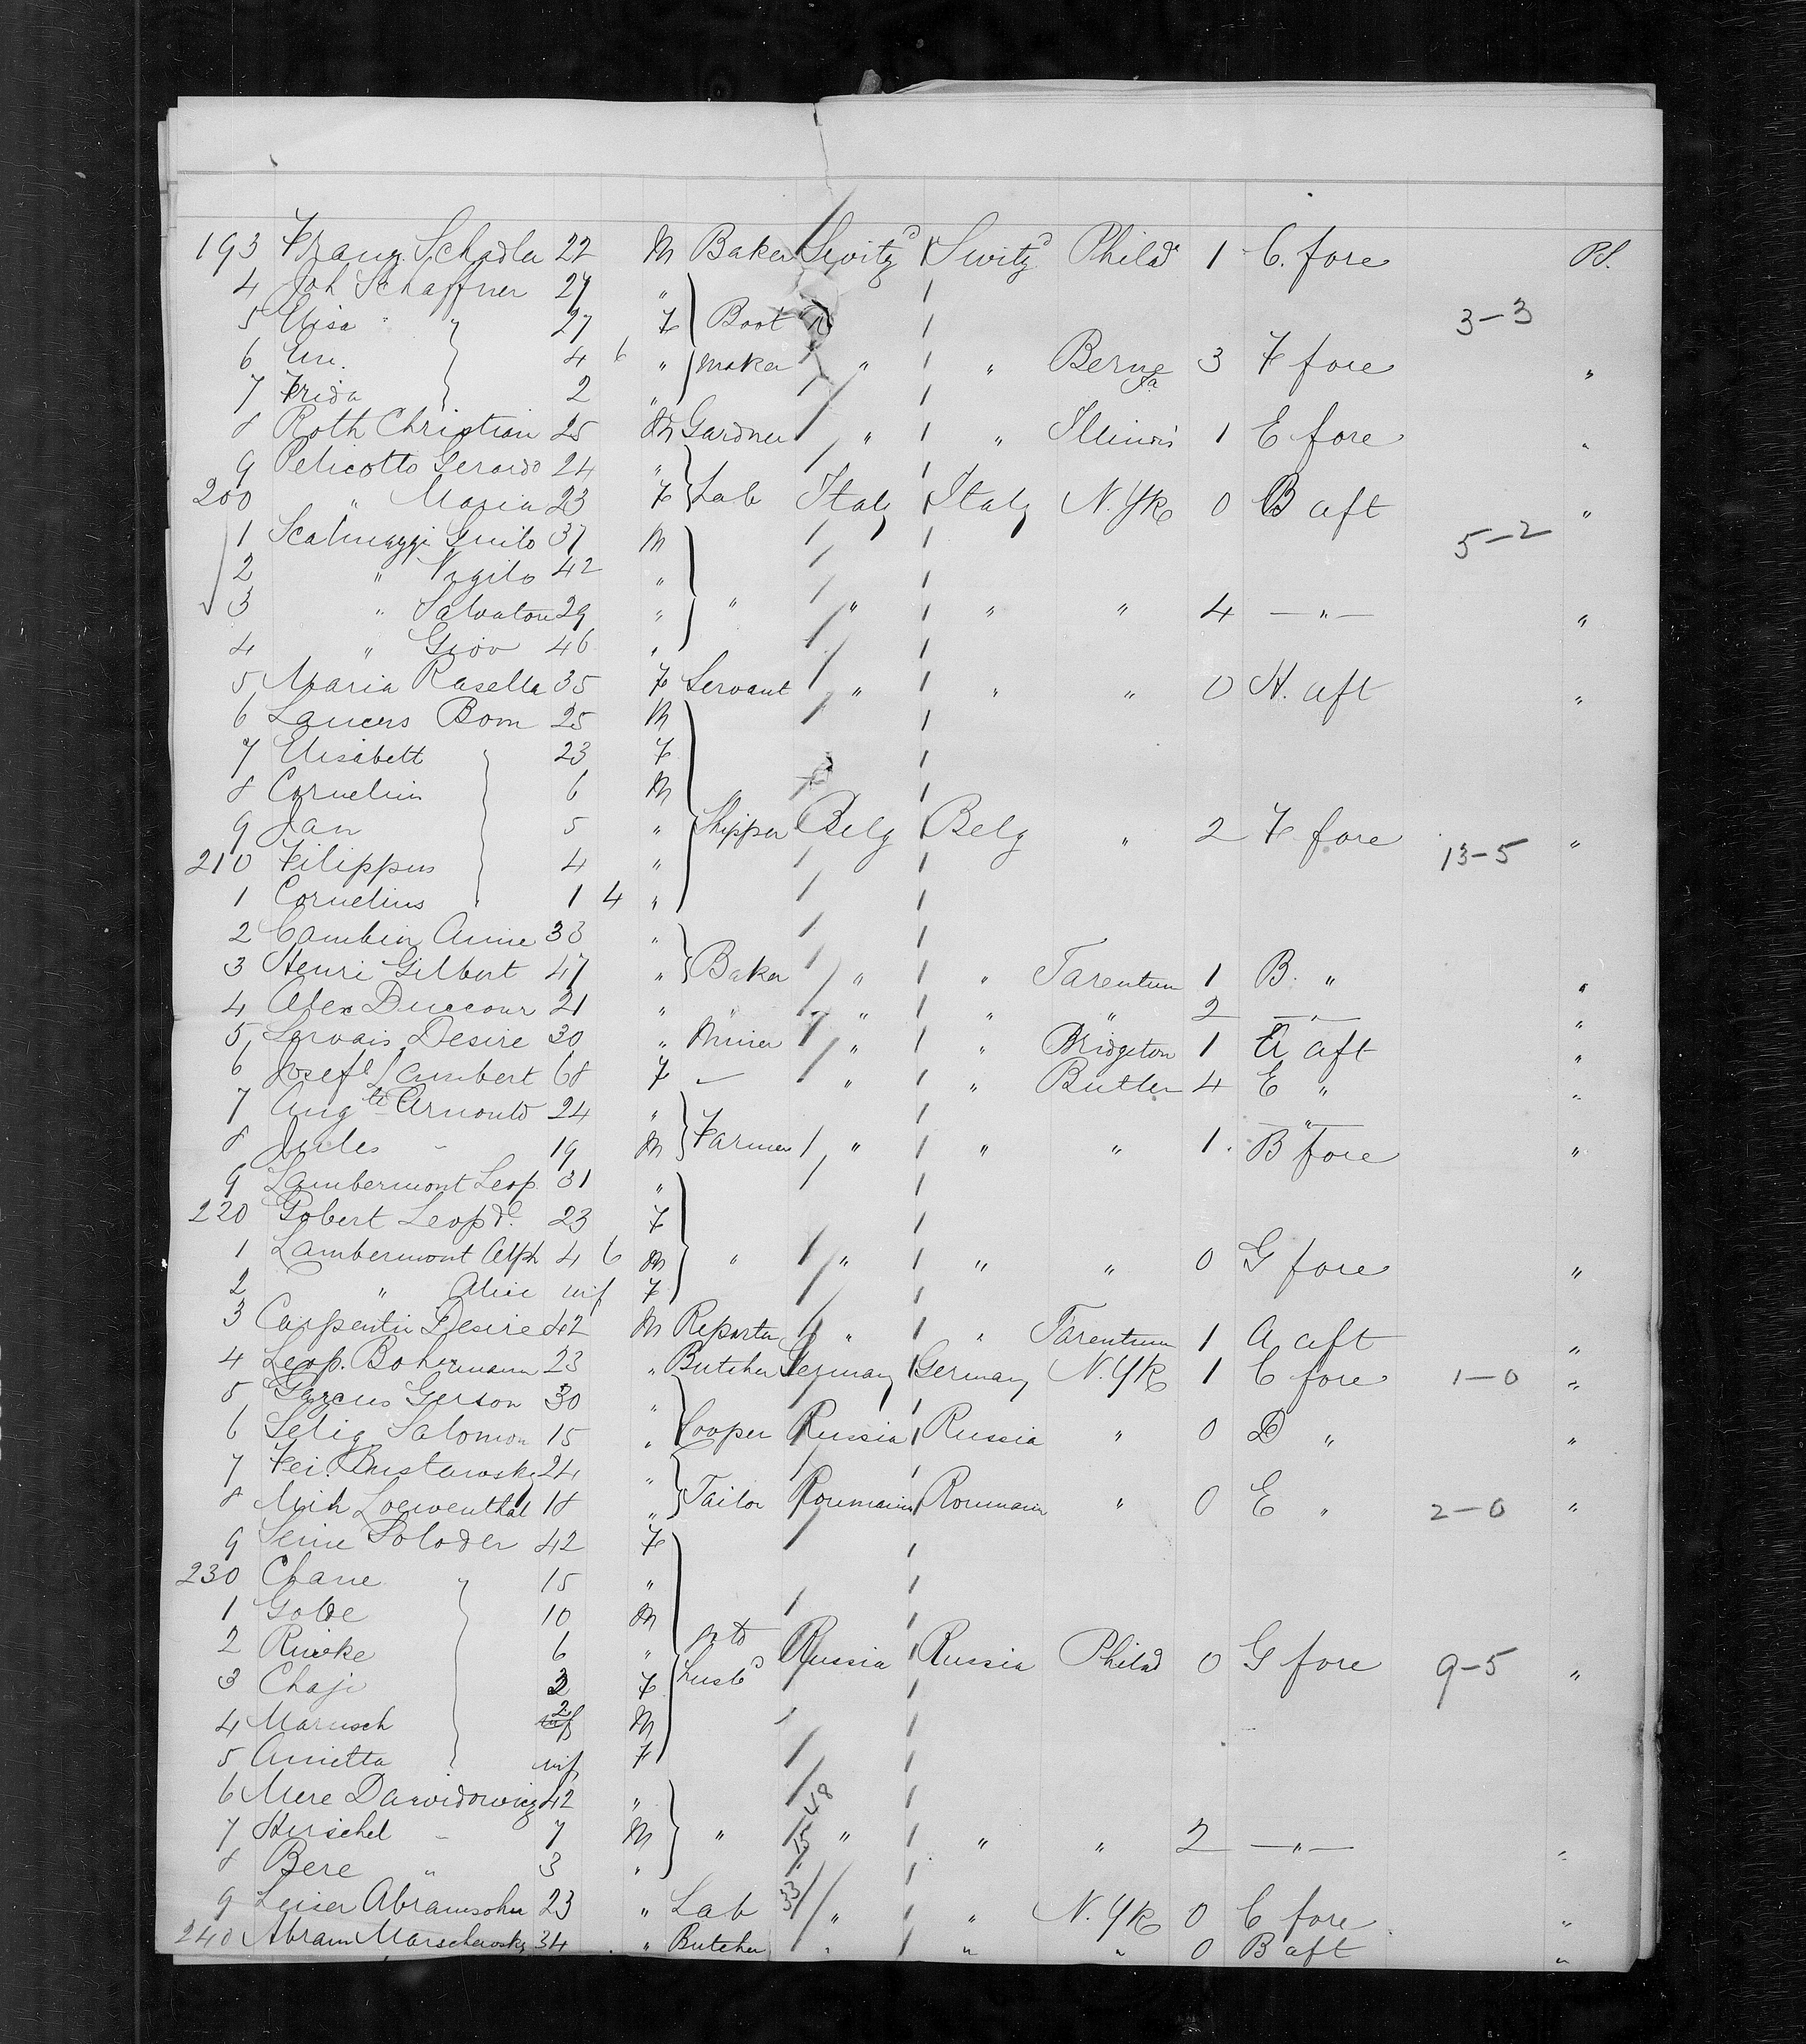 193 Franz Schadla 22 M Baker Switzd Switzd Philad 1 C. fore PS.
4 Joh Schaffner 27 "
5 Elisa " 27 F Boot 3-3
6 Em. 4 6 " maker " " Berne Ia 3 F fore "
7 Frida 2 "
8 Roth Christian 25 M Gardner " " Illinois 1 E fore "
9 Pelicotto Gerardo 24 "
200 " Maria 23 F Lab Italy Italy N.Yk 0 B aft "
1 37 M 5-2
2 " Virgilo 42 "
3 " Salvatore 29 " " " " " 4 — " — "
4 " Giov 46 "
5 Maria Rasella 35 F Servant " " " 0 H. aft "
6 Laucers Bom 25 M
7 Elisabett 23 F
8 Cornelius 6 M
9 Jan 5 " Shipper Belg Belg " 2 F fore "
210 Filippus 4 " 13-5
1 Cornelius 1 4 "
2 Cambier 33 "
3 Henri Gilbert 47 " Baker " " Tarentum 1 B. " "
4 Alex Duccour 21 " " " " " 2 — " — "
5 Desire 30 " Miner " " Bridgeton 1 A aft "
6 Josefe Lambert 68 F — " " Butler 4 E " "
7 Augte Arnould 24 " — " —
8 Jules " 19 M Farmer " " " 1 B fore "
9 Lambermont Leop. 31 "
220 Gobert Leopde 23 F
1 Lambermont Alph 4 6 M " " " " 0 G fore "
2 " Alice inf F
3 Carpentier Desire 42 M Reporter " " Tarentum 1 A aft "
4 Leop. Bohrmann 23 " Butcher Germany Germany N.Yk 1 C fore 1-0 "
5 Gerson 30 "
6 Selig Salomon 15 " Cooper Russia Russia " 0 D " "
7 24 "
8 Mich Loewenthal 18 " Tailor Roumain Roumain " 0 E " 2-0 "
9 Seine Soloder 42 F
230 Chane " 15 "
1 Golde 10 M
2 Riwke 6 " Russia Russia Philad 0 G fore 9-5 "
3 Chaje 3 F husbd
4 Marusch 2 M
5 Anietta inf F
6 Mere Dawidowicz 42 " 48
7 Herschel " 7 M " 15 " " " 2 — " — "
8 Bere " 3 "
9 Leiser Abramsohn 23 " Lab 33 " " N.Yk 0 C fore "
240 Abram Marschewsky 34 " Butcher " " " 0 B aft "